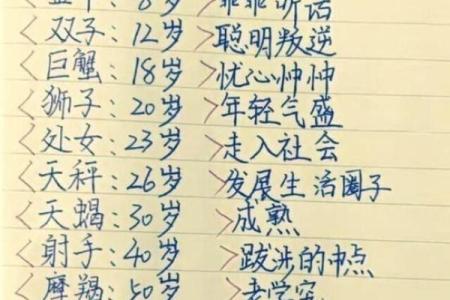 <金牛：8岁 >乖乖听话
<双子：12岁 >聪明叛逆
<巨蟹：18岁 >忧心忡忡
<狮子：20岁 >年轻气盛
<处女：23岁 >走入社会
<天秤：26岁 >发展生活圈子
<天蝎：30岁 >成熟
<射手：40岁 >跋涉的中点
<摩羯：50岁 >老学究